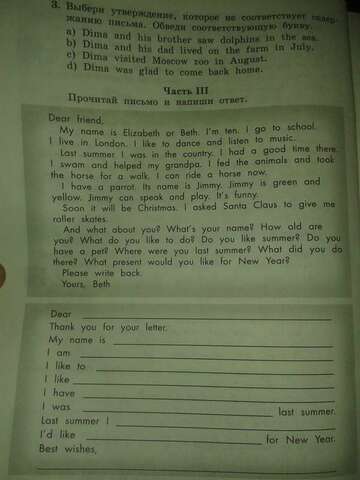 3. Выбери утверждение, которое не соответствует содер-
жанию письма. Обведи соответствующую букву.
a) Dima and his brother saw dolphins in the sea.
b) Dima and his dad lived on the farm in July.
c) Dima visited Moscow zoo in August.
d) Dima was glad to come back home.
Часть III
Прочитай письмо и напиши ответ.
Dear friend,
My name is Elizabeth or Beth. I'm ten. I go to school.
I live in London. I like to dance and listen to music.
Last summer I was in the country. I had a good time there.
I swam and helped my grandpa. I fed the animals and took
the horse for a walk. I can ride a horse now.
I have a parrot. Its name is Jimmy. Jimmy is green and
yellow. Jimmy can speak and play. It's funny.
Soon it will be Christmas. I asked Santa Claus to give me
roller skates.
And what about you? What's your name? How old are
you? What do you like to do? Do you like summer? Do you
have a pet? Where were you last summer? What did you do
there? What present would you like for New Year?
Please write back.
Yours, Beth
Dear
Thank you for your letter.
My name is
I am
I like to
I like
I have
I was last summer.
Last summer I
I'd like for New Year.
Best wishes,